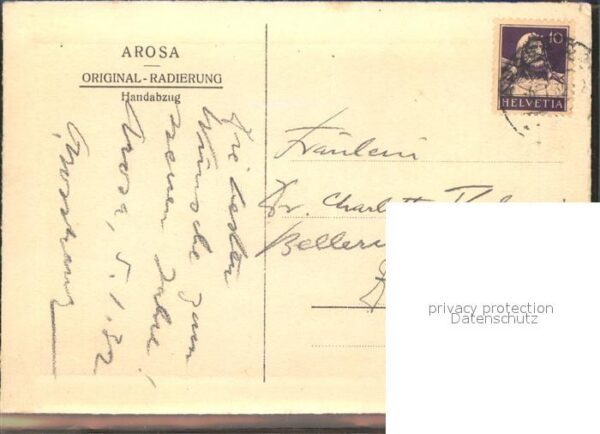 AROSA
ORIGINAL-RADIERUNG
Handabzug
Die besten
Wünsche zum
neuen Jahre!
Arosa, 5.1.32
10
HELVETIA
Fräulein
Dr. Charlotte
privacy protection
Datenschutz